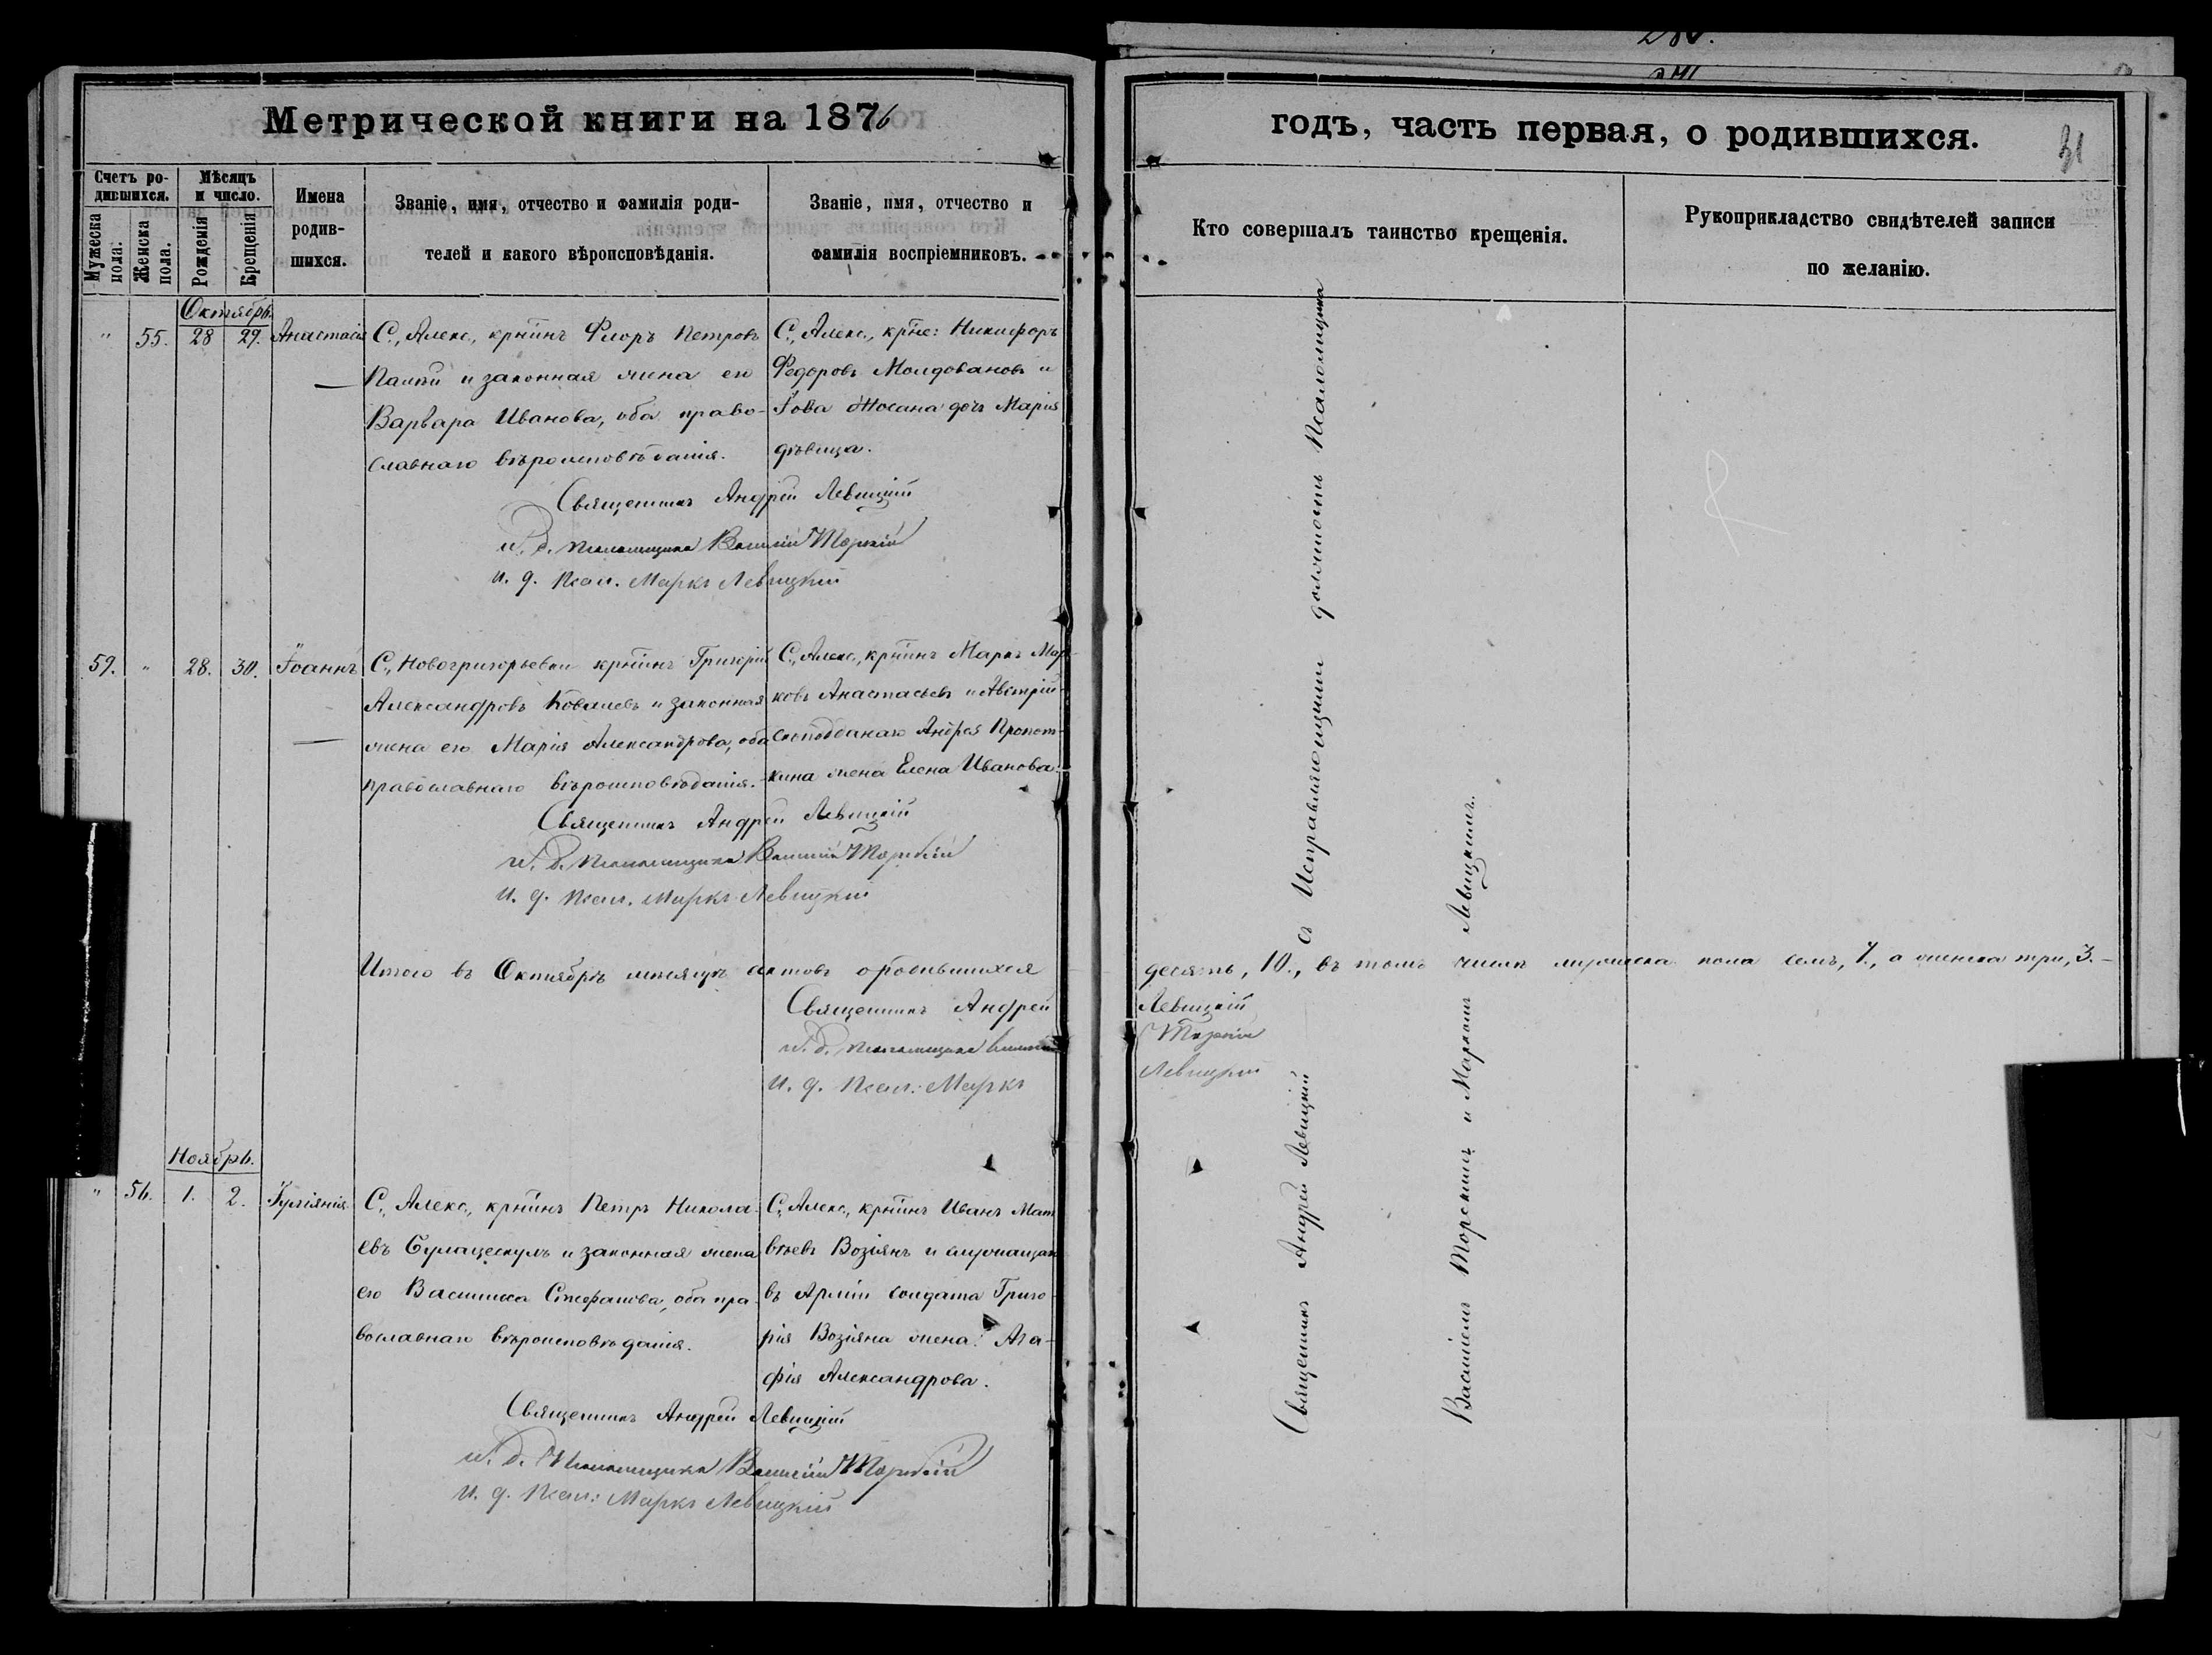 Метрической книги на 1876
годъ, часть первая, о родившихся.
31
Счетъ родившихся.
Мужеска пола.
Женска пола.
Мѣсяцъ и число.
Рожденія
Крещенія
Имена родившихся.
Званіе, имя, отчество и фамилія родителей и какого вѣроисповѣданія.
Званіе, имя, отчество и фамилія воспріемниковъ.
Кто совершалъ таинство крещенія.
Рукоприкладство свидѣтелей записи по желанію.
Октябрь.
" 55. 28 29. Анастасія
С., Алекс., крнинъ Флоръ Петровъ
и законная жена его
Варвара Иванова, оба право-
славнаго вѣроисповѣданія.
С., Алекс., кр͠не: Никифоръ
Федоровъ Молдовановъ и
Іова дочь Марія
дѣвица.
Священникъ Андрей Левицкій
И. д. псаломщика Василій Торскій
И. д. псал. Маркъ Левицкій
59. " 28. 30. Іоаннъ
С., Новогригорьевки крнинъ Григорій
Александровъ Ковалевъ и законная
жена его Марія Александрова, оба
православнаго вѣроисповѣданія.
С., Алекс., крнинъ Маркъ Мар-
ковъ Анастасьевъ и Австрій-
скоподданаго Андрея Пропот-
кина жена Елена Иванова.
Священникъ Андрей Левицкій
И. д. псаломщика Василій Торскій
И. д. псал. Маркъ Левицкій
Итого въ Октябрѣ мѣсяцѣ актовъ о родившихся
десять, 10., въ томъ числѣ мужеска пола семь, 7., а женска три, 3.-
Священникъ Андрей Левицкій
И. д. псаломщика Василій Торскій
И. д. псал: Маркъ Левицкій
Ноябрь.
" 56. 1. 2. Іуліянія
С., Алекс., крнинъ Петръ Никола-
евъ и законная жена
его Василисса Стефанова, оба пра-
вославнаго вѣроисповѣданія.
С., Алекс., крнинъ Иванъ Мат-
вѣевъ Возіянъ и служащаго
въ Арміи солдата Григо-
рія Возіяна жена: Ага-
фія Александрова.
Священникъ Андрей Левицкій
И. д. Псаломщика Василій Торскій
И. д. псал: Маркъ Левицкій
Священникъ Андрей Левицкій съ Исправляющими должность Псаломщика
Василіемъ Торскимъ и Маркомъ Левицкимъ.